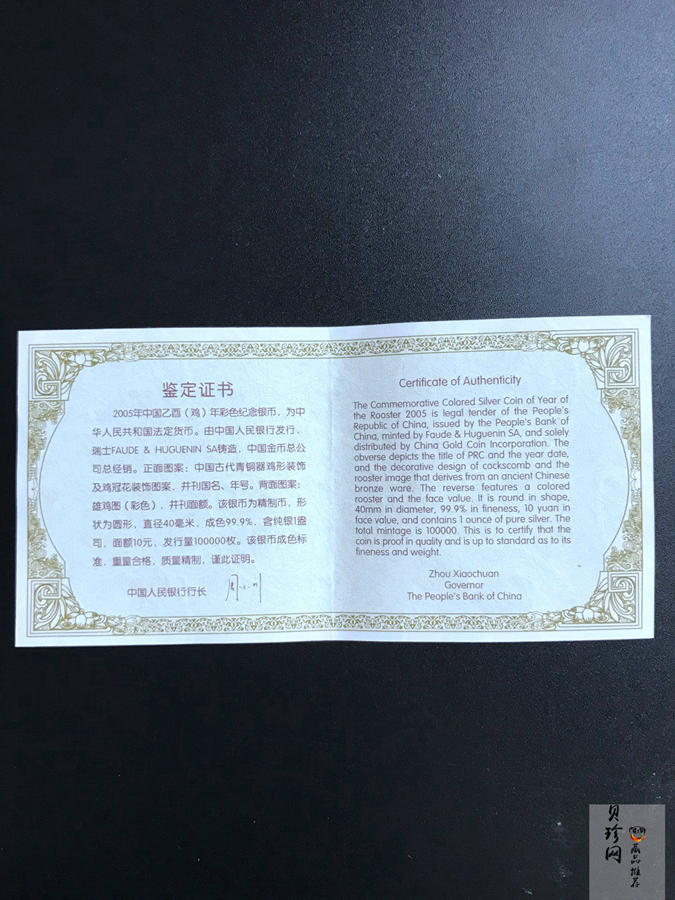 鉴定证书
2005年中国乙酉（鸡）年彩色纪念银币，为中
华人民共和国法定货币。由中国人民银行发行、
瑞士FAUDE & HUGUENIN SA铸造，中国金币总公
司总经销。正面图案：中国古代青铜器鸡形装饰
及鸡冠花装饰图案，并刊国名、年号。背面图案：
雄鸡图（彩色），并刊面额。该银币为精制币，形
状为圆形，直径40毫米，成色99.9%，含纯银1盎
司，面额10元，发行量100000枚。该银币成色标
准，重量合格，质量精制，谨此证明。
中国人民银行行长
Certificate of Authenticity
The Commemorative Colored Silver Coin of Year of
the Rooster 2005 is legal tender of the People's
Republic of China, issued by the People's Bank of
China, minted by Faude & Huguenin SA, and solely
distributed by China Gold Coin Incorporation. The
obverse depicts the title of PRC and the year date,
and the decorative design of cockscomb and the
rooster image that derives from an ancient Chinese
bronze ware. The reverse features a colored
rooster and the face value. It is round in shape,
40mm in diameter, 99.9% in fineness, 10 yuan in
face value, and contains 1 ounce of pure silver. The
total mintage is 100000. This is to certify that the
coin is proof in quality and is up to standard as to its
fineness and weight.
Zhou Xiaochuan
Governor
The People's Bank of China
贝珍网
藏品推荐